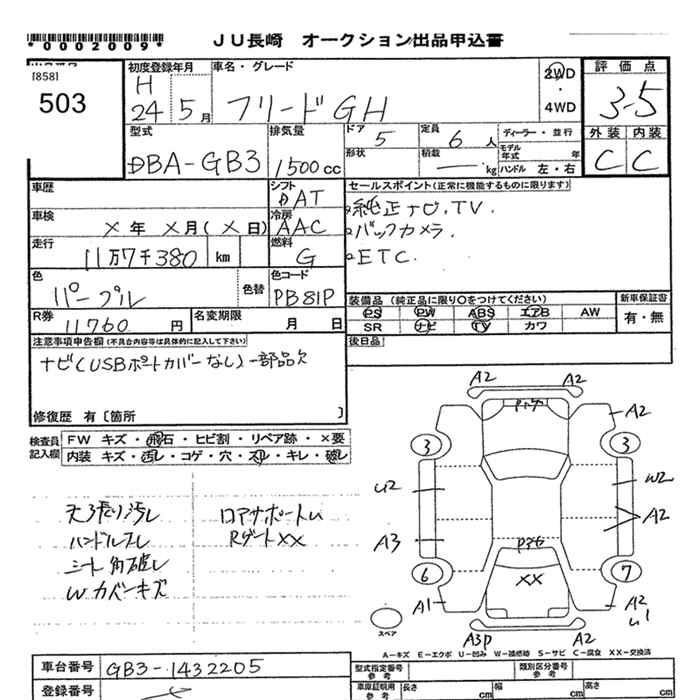 *0002009*
JU長崎 オークション出品申込書
[858]
503
初度登録年月
H
24年5月
車名・グレード
フリード GH
2WD
・
4WD
評価点
3-5
外装 内装
C C
型式
DBA-GB3
排気量
1500cc
ドア 5
定員 6人
ディーラー・並行
形状
積載 ― kg
モデル年式 年
ハンドル 左・右
車歴
シフト
DAT
セールスポイント(正常に機能するものに限ります)
純正ナビ,TV.
バックカメラ.
ETC.
車検
×年 ×月(×日)
冷房
AAC
走行
11万7千380 km
燃料
G
色
パープル
色替
色コード
PB81P
装備品 (純正品に限り○をつけてください)
PS PW ABS エアB AW
SR ナビ TV カワ
新車保証書
有・無
R券
11760円
名変期限
月 日
後日品
注意事項申告欄(不具合内容等は具体的に記入して下さい)
ナビ(USBポートカバーなし)一部品欠
修復歴 有〔箇所 〕
検査員記入欄
FW キズ・飛石・ヒビ割・リペア跡・×要
内装 キズ・汚レ・コゲ・穴・スレ・キレ・破レ
天張り汚レ
ハンドルスレ
シート角破レ
Wカバーキズ
ロアサポートU
RゲートXX
A2 A2
A2
3 3
U2 W2
A2
A3
XX
6 7
A1 A2
U1
スペア
A3P A2
A-キズ E-エクボ U-凹み W-補修跡 S-サビ C-腐食 XX-交換済
車台番号
GB3-1432205
登録番号
型式指定番号
参考
類別区分番号
参考
車庫証明用
参考
長さ cm
幅 cm
高さ cm